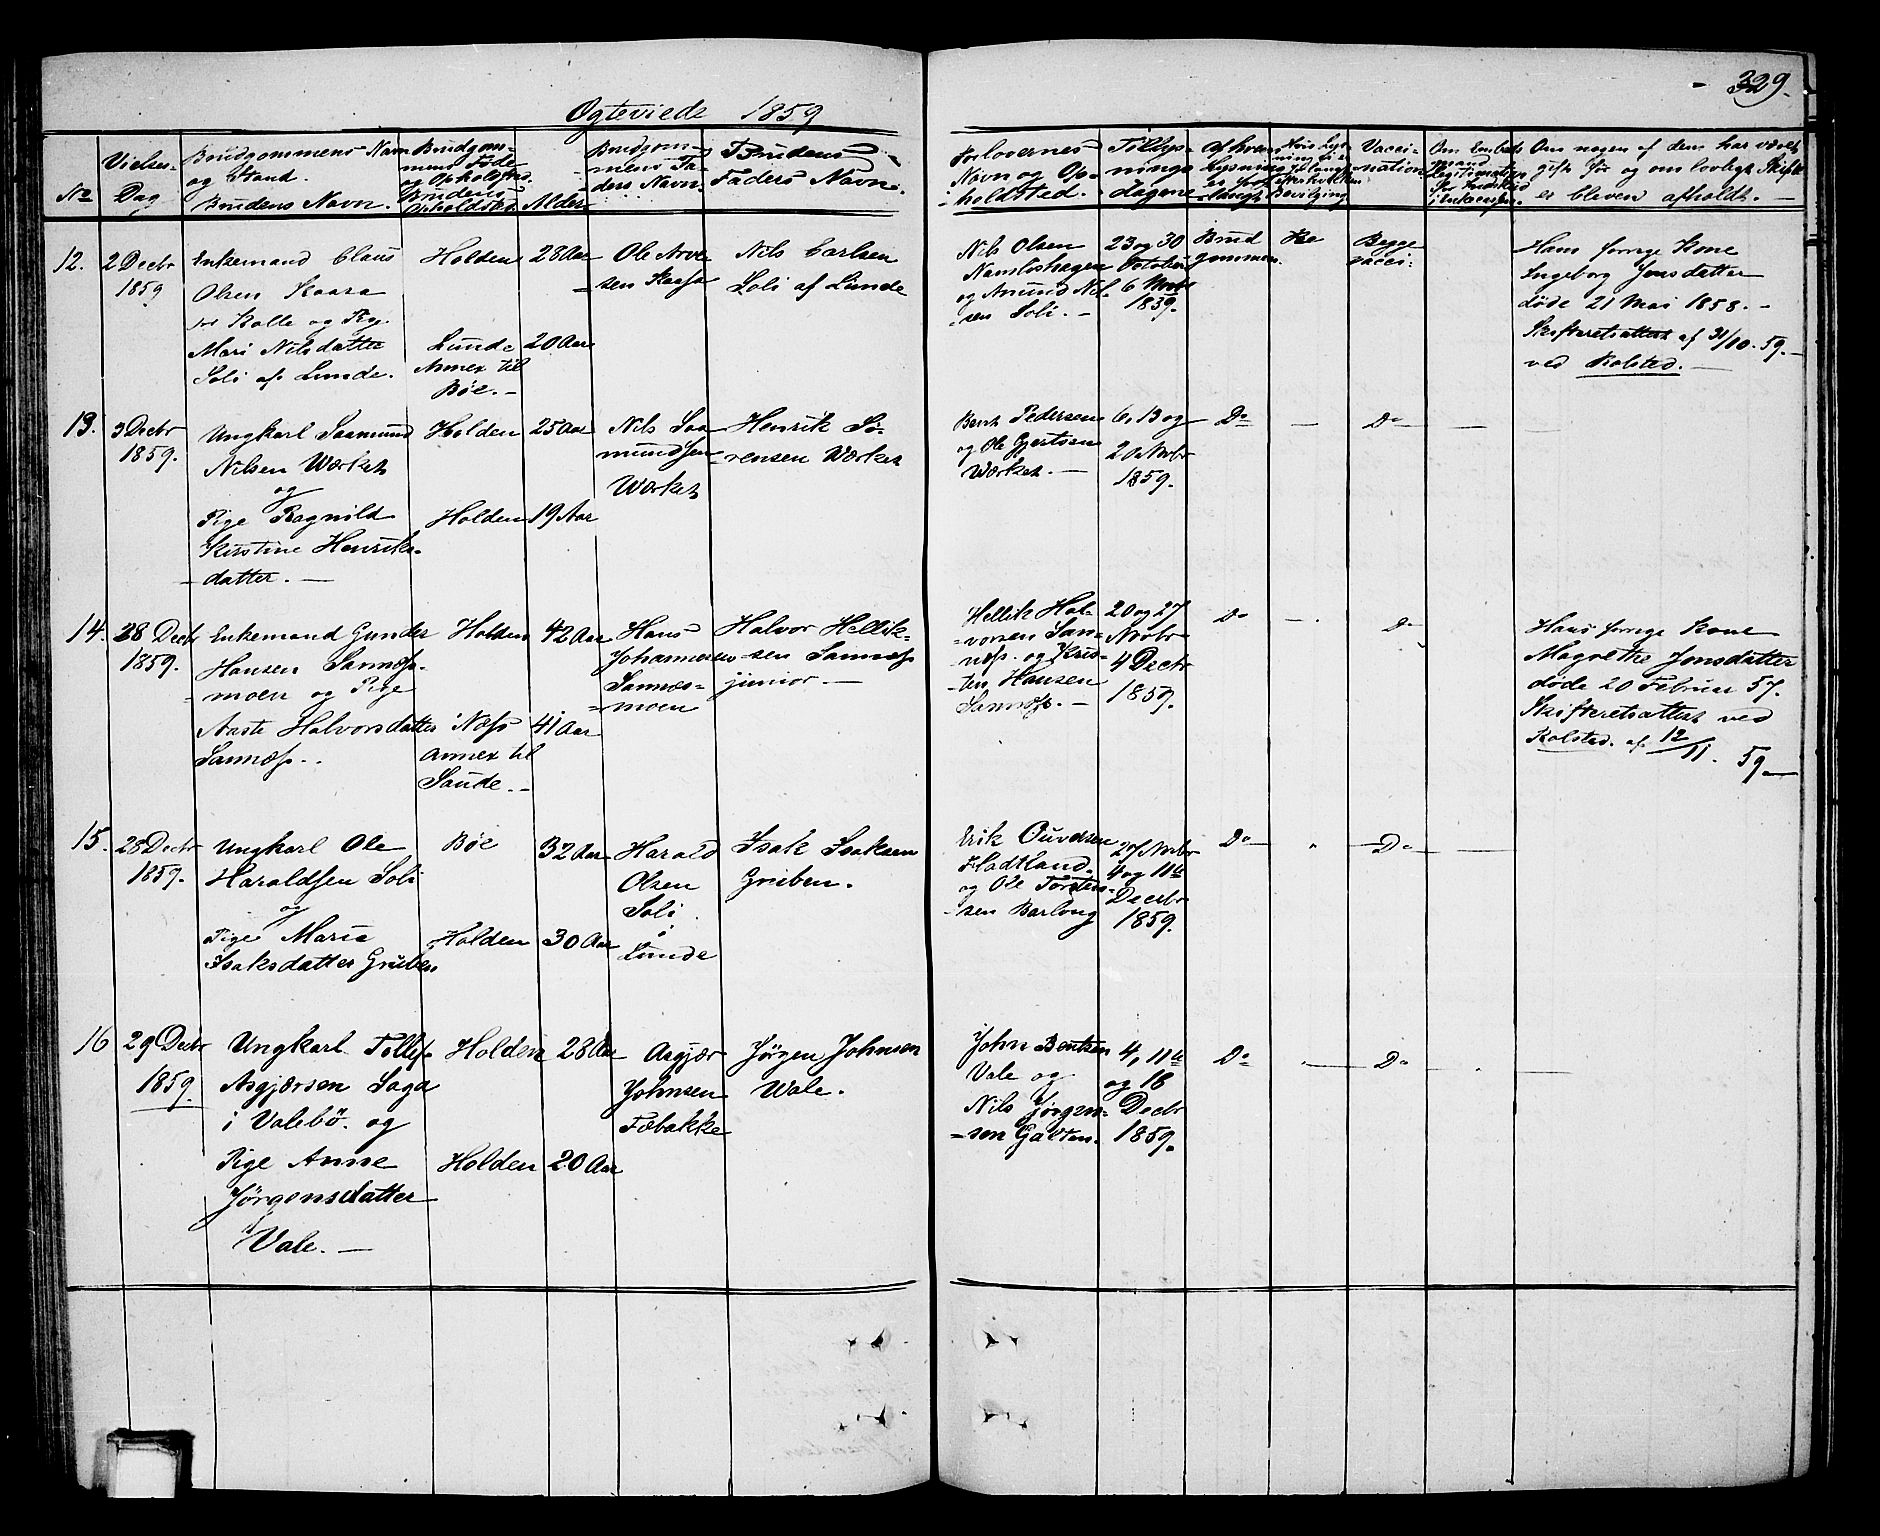 329.
Ogteviede 1859
No
Vielses-
Dag
Brudgommens Navn
og Stand.
Brudens Navn.
Brudgom-
mens Føde
og Opholdsted.
Brudens
Opholdsted
Alder
Brudgom-
mens Fa-
ders Navn.
Brudens
Faders Navn.
Forlovernes
Navn og Op-
holdsted.
Tillys-
nings
dagene
Vacci-
nation
Om nogen af dem har været
gift før og om lovligt Skifte
er bleven afholdt. —
12.
2 Decbr
1859
Enkemand Claus
Olsen Kaasa
og Pige
Mari Nilsdatter
Soli af Lunde.
Holden
Lunde
Annex til
Bøe. -
28 Aar
20 Aar
Ole Arve
sen Kaasa
Nils Carlsen
Soli af Lunde
Nils Olsen
Namløshagen
og Amund Nil-
sen Soli. -
23 og 30
October
6 Novbr
1859.
Brud
gommen.
Begge
vacci:
Hans forrige Kone
Ingeborg Jonsdatter
døde 21 Mai 1858. -
Skifteretsattest af 31/10. 59. -
ved Rolsted. —
13.
3 Decbr
1859.
Ungkarl Saamund
Nilsen Værket
og
Pige Ragnild
Kirstine Henriks-
datter. —
Holden
Holden
25 Aar
19 Aar
Nils Saa
mundsen
Værket
Henrik Sø-
rensen Værket
Bent Pedersen
og Ole Gjertsen
Værket. —
6, 13 og
20 Novbr
1859.
Do
—
Do
—
—
14.
28 Decbr
1859.
Enkemand Gunder
Hansen Sannæss-
moen og Pige
Aaste Halvorsdatter
Sannæss. .
Holden
Næss
Annex til
Saude. -
42 Aar
41 Aar
Hans
Johannesen
Sannæs-
moen
Halvor Hellik-
sen Sannæss
junior. —
Hellik Hal-
vorsen San-
næss. og Kris-
ten Hansen
Sannæss. -
20 og 27
Novbr
4 Decbr
1859.
Do
- .
Do
Hans forrige Kone
Magrethe Jonsdatter
døde 20 Februar 57.
Skifteretsattest ved
Rolsted. af 12/11. 59 —
15.
28 Decbr
1859.
Ungkarl Ole
Haraldsen Soli
og
Pige Maria
Isaksdatter Gruben
Bøe
Holden
32 Aar
30 Aar
Harald
Olsen
Soli
i
Lunde
Isak Isaksen
Gruben.
Erik Ouvdsen
Hadtland
og Ole Torsten-
sen Barloug
27 Novbr
4 og 11te
Decbr
1859.
Do
"
Do
—
16
29 Decbr
1859.
Ungkarl Tollef
Asgjærsen Saga
i Valebø. og
Pige Anne
Jørgensdatter
Vale. —
Holden
Holden
28 Aar
20 Aar
Asgjær
Johnsen
Fæbakke
Jørgen Johnsen
Vale.
John Bentsen
Vale og
Nils Jørgen-
sen Galten.
4, 11te
og 18
Decbr
1859.
Do
—
Do
"
—